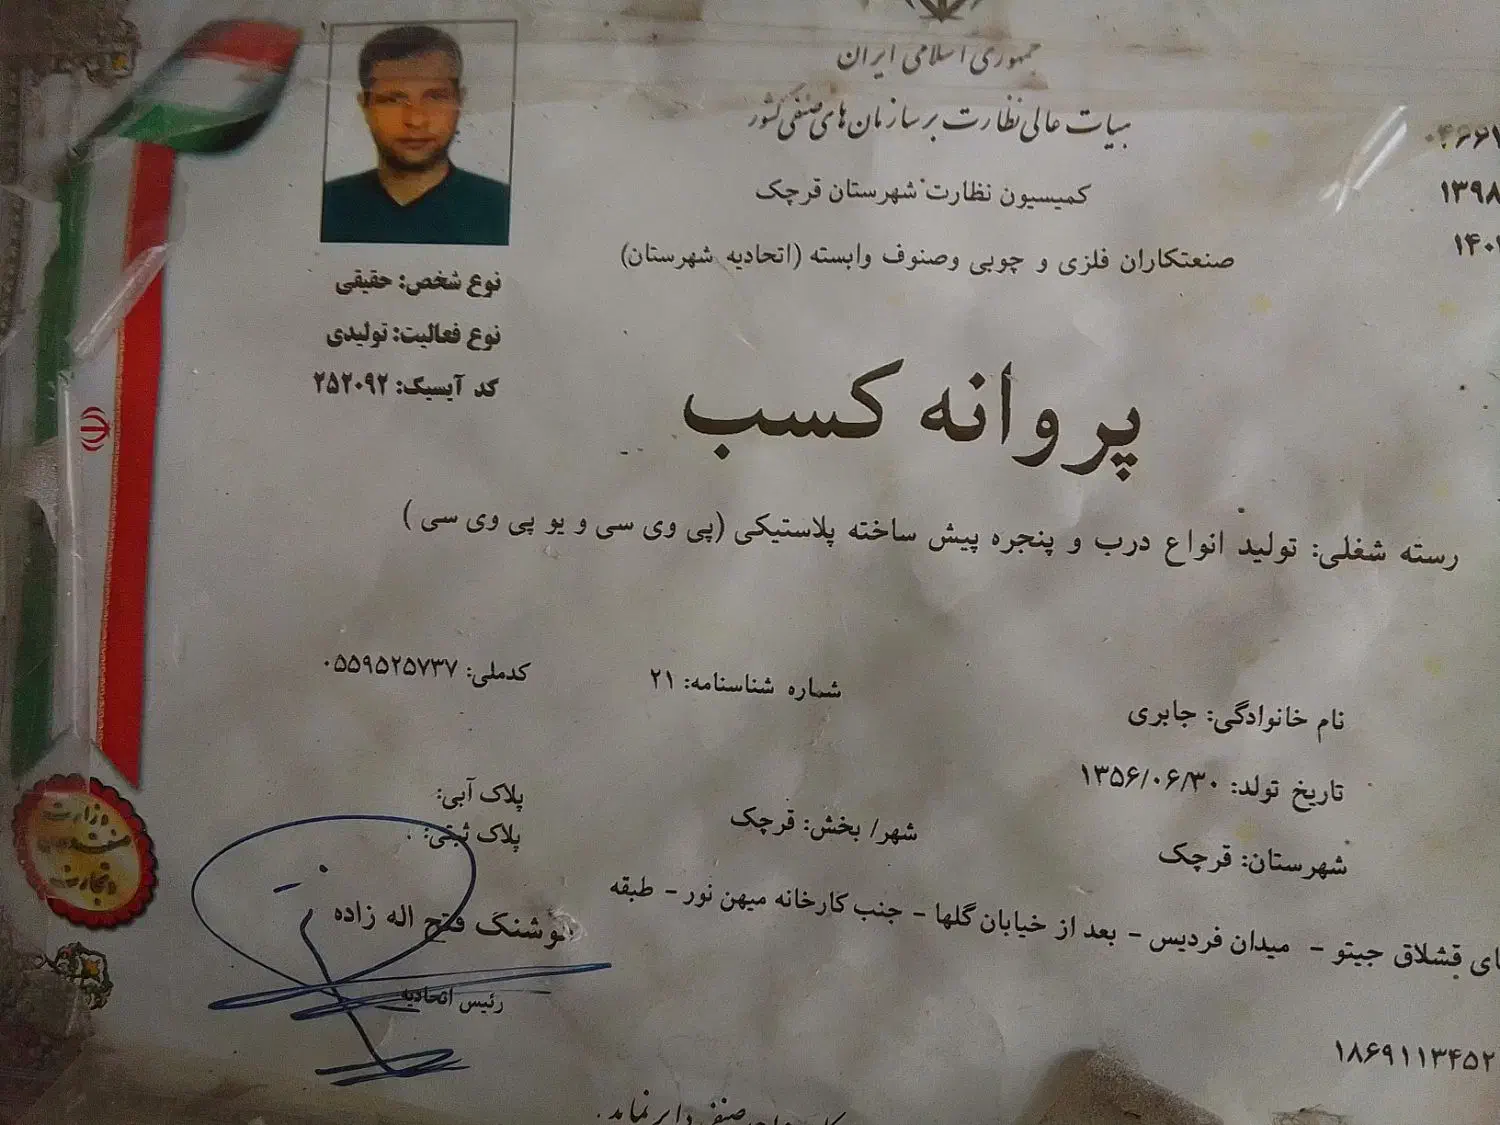 جمهوری اسلامی ایران
هیات عالی نظارت بر سازمان های صنفی کشور
کمیسیون نظارت شهرستان قرچک
صنعتکاران فلزی و چوبی وصنوف وابسته (اتحادیه شهرستان)
۰۴۶۶۱
۱۳۹۸
۱۴۰
نوع شخص: حقیقی
نوع فعالیت: تولیدی
کد آیسیک: ۲۵۲۰۹۲
پروانه کسب
رسته شغلی: تولید انواع درب و پنجره پیش ساخته پلاستیکی (پی وی سی و یو پی وی سی )
نام خانوادگی: جابری
شماره شناسنامه: ۲۱
کدملی: ۰۵۵۹۵۲۵۷۳۷
تاریخ تولد: ۱۳۵۶/۰۶/۳۰
پلاک آبی:
شهرستان: قرچک
شهر/ بخش: قرچک
پلاک ثبتی:
قشلاق جیتو - میدان فردیس - بعد از خیابان گلها - جنب کارخانه میهن نور - طبقه
هوشنگ فتح اله زاده
رئیس اتحادیه
۱۸۶۹۱۱۳۴۵۲
وزارت
صنعت معدن
تجارت
صنفی دایر نماید.